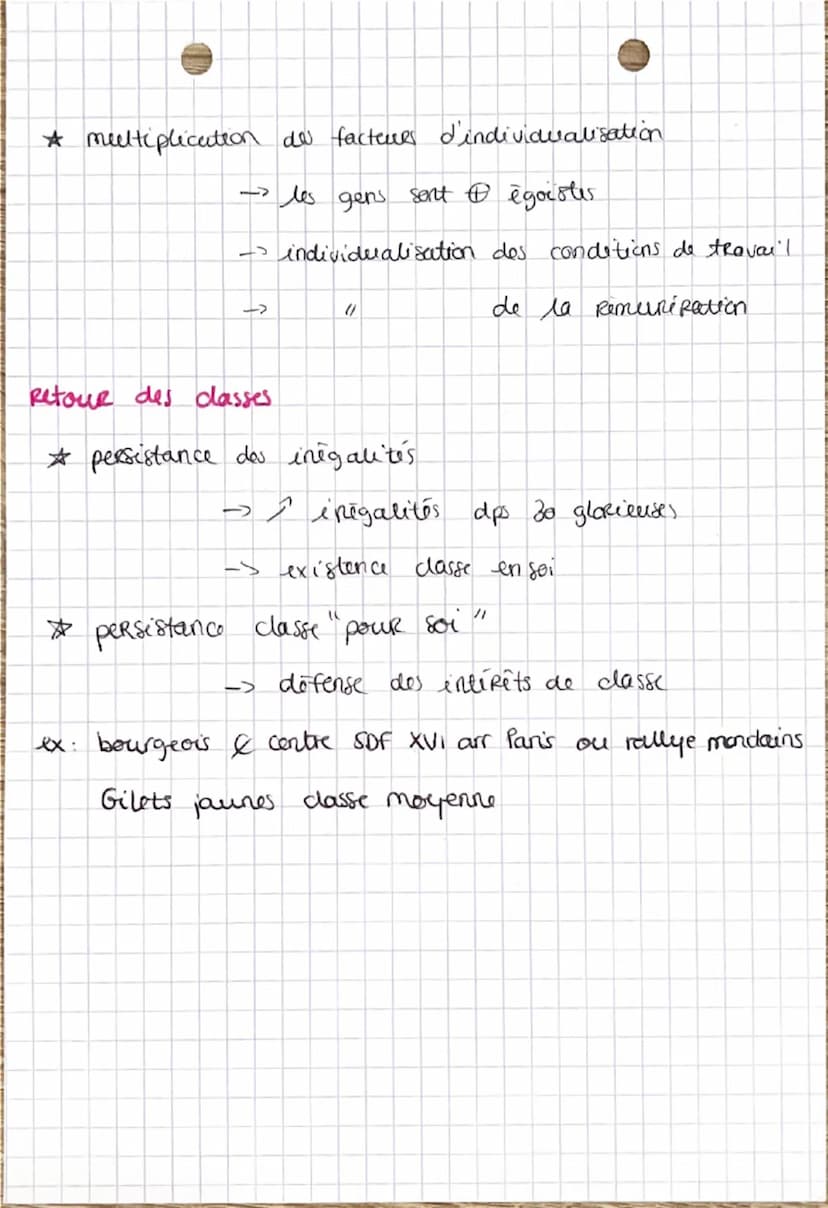 ☆ multiplication des facteurs d'individualisation
→ les gens sont ⊕ égoistes
→ individualisation des conditions de travail
→ " de la rémunération
Retour des classes
☆ persistance des inégalités
→ ↗ inégalités dps 30 glorieuses
→ existence classe en soi
☆ persistance classe "pour soi"
→ défense des intérêts de classe
ex: bourgeois & centre SDF XVI arr Paris ou rallye mondains
Gilets jaunes classe moyenne